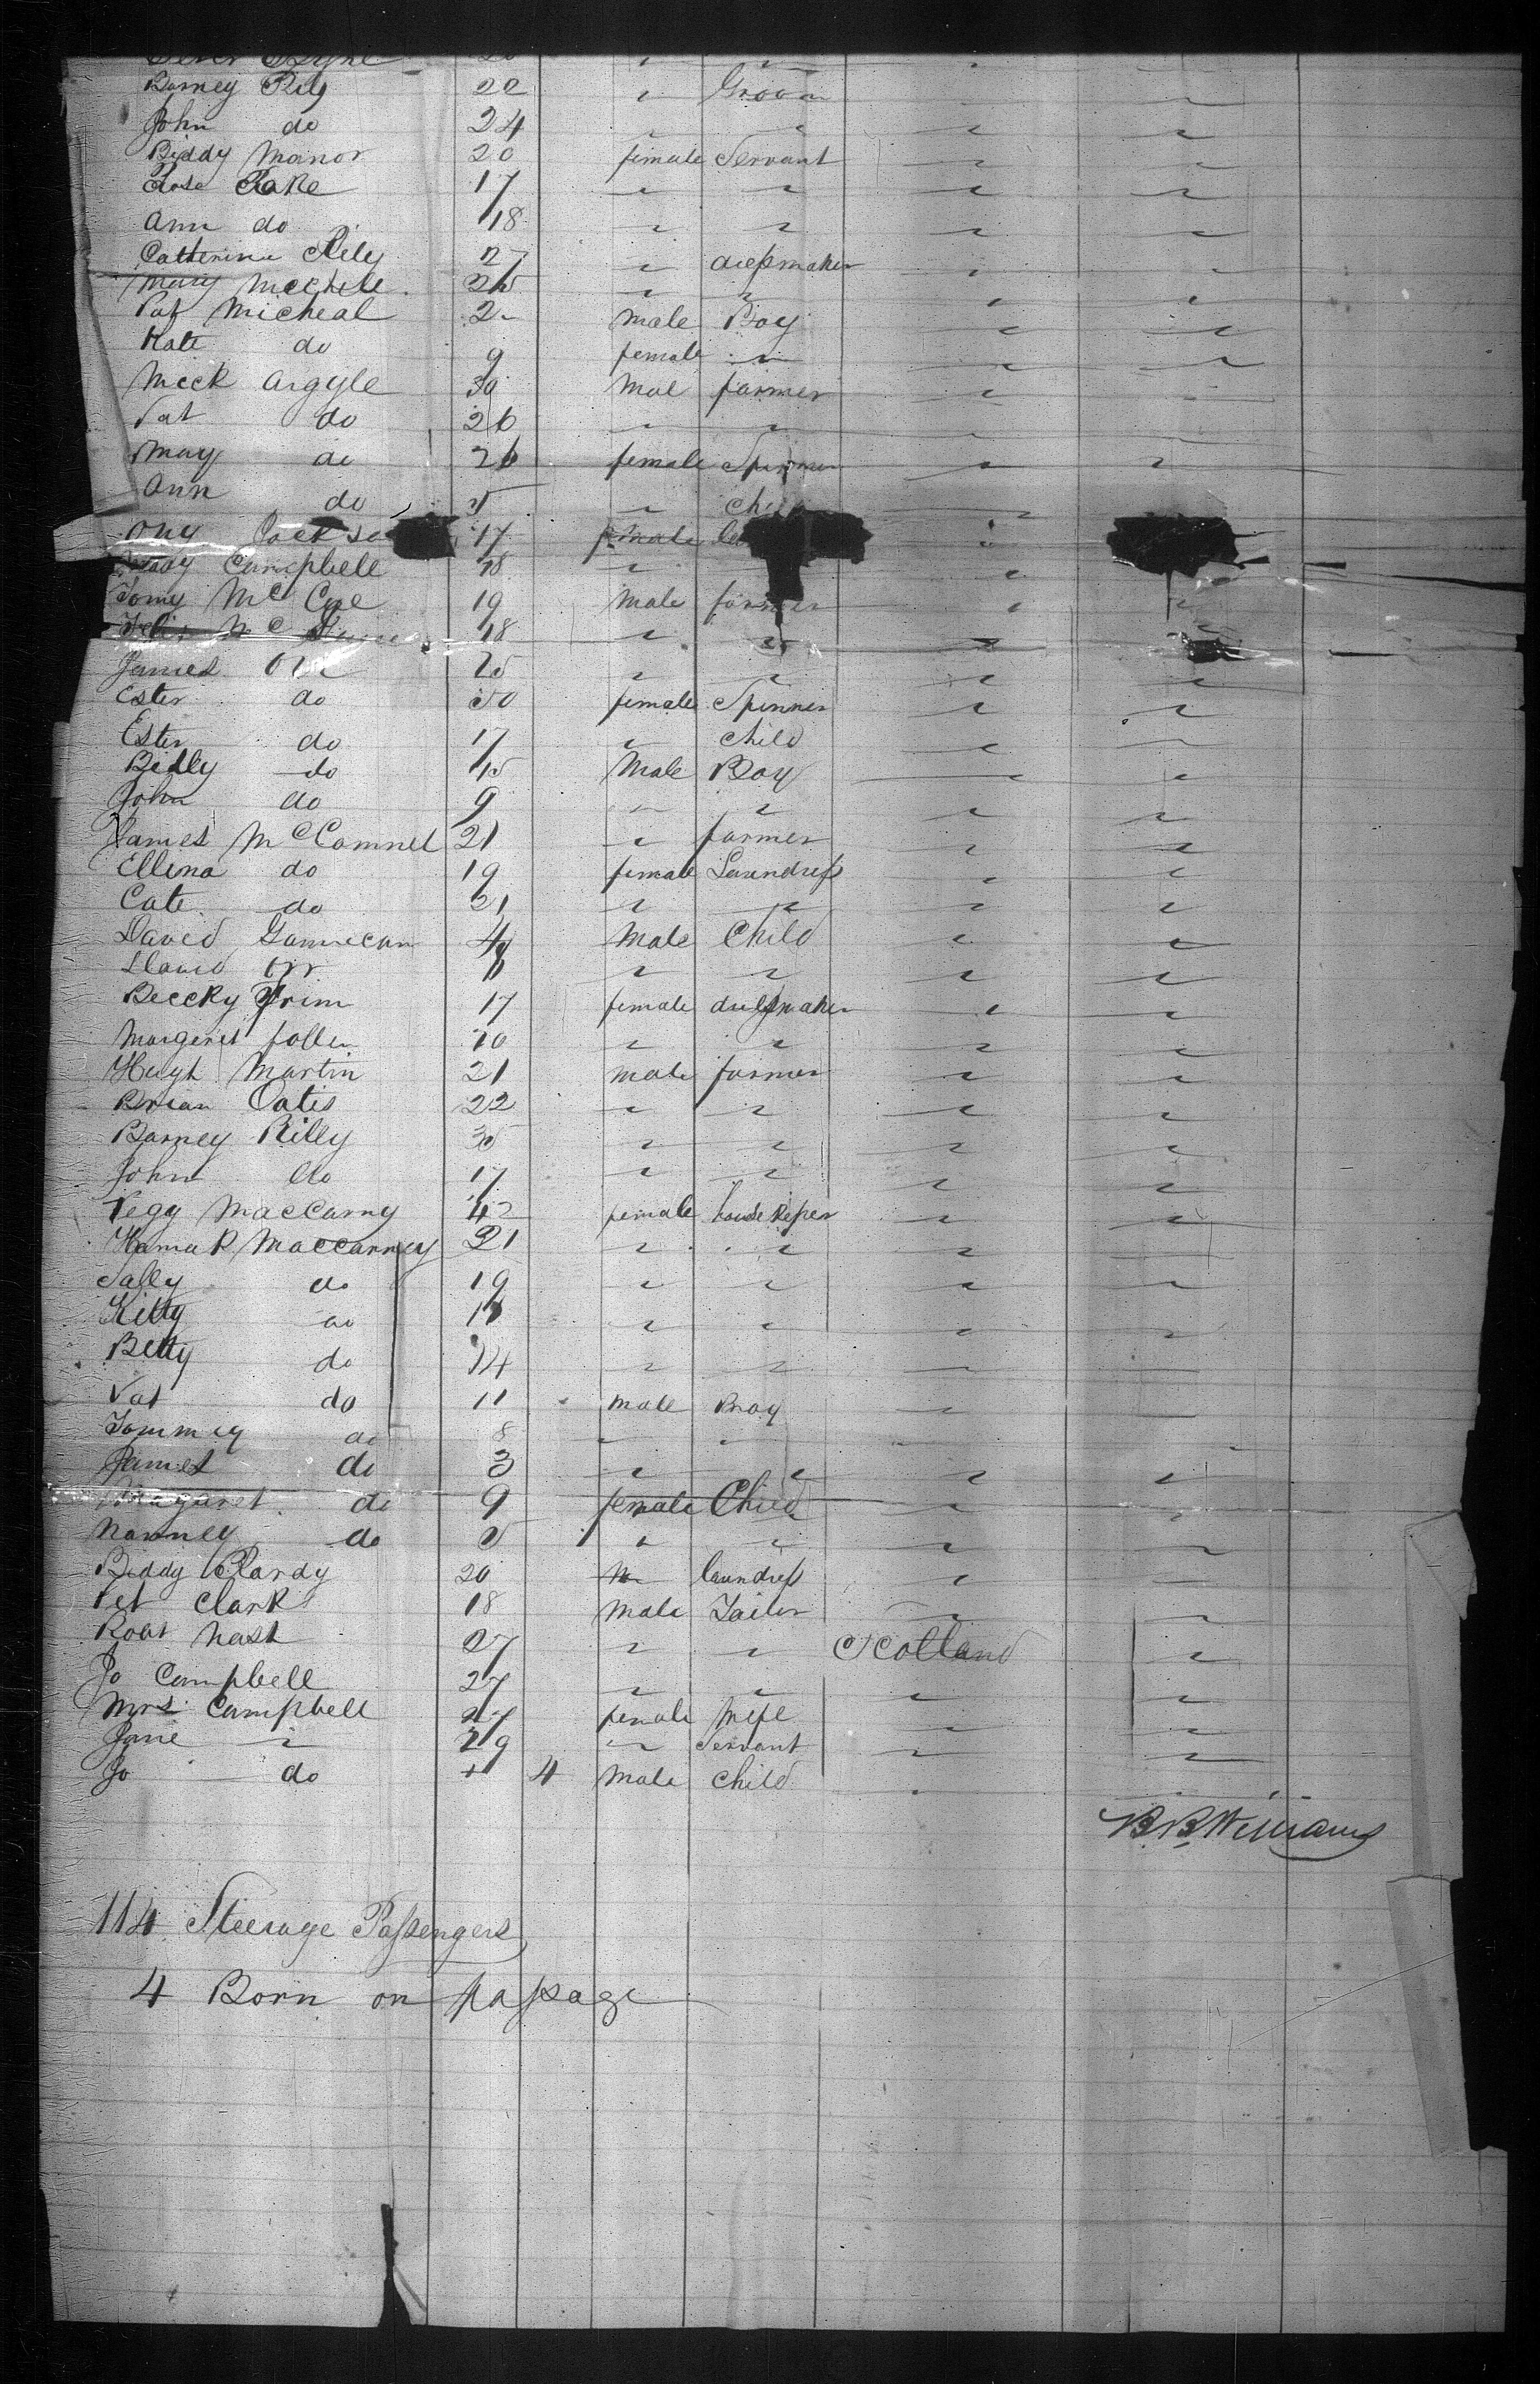 Barney Rily 22 " Groom " "
John do 24 " " " "
Biddy Manor 20 female Servant " "
Rose Rake 17 " " " "
Ann do 18 " " " "
Catherine Rily 27 " dressmaker " "
Mary 25 " " " "
Pat Micheal 2 male Boy " "
Kate do 9 female " " "
Mick Argyle 30 Mal farmer " "
Pat do 26 " " " "
Mary do 26 female Spinner " "
Ann do 5 " "
17 "
Campbell 18 " "
Tomy Mc Cue 19 Male farmer " "
Mc 18 " " " "
James 25 " " " "
Ester do 50 female Spinner " "
Ester do 17 " child " "
Bidly do 15 Male Boy " "
John do 9 " " " "
James McComnel 21 " farmer " "
Ellena do 19 female Laundress " "
Cate do 21 " " " "
David 4 Male Child " "
David Orr " " " "
Beccky Trim 17 female dressmaker " "
Margeret " " " "
Hugh Martin 21 male farmer " "
Brian Oatis 22 " " " "
Barney Rilly 35 " " " "
John do 17 " " " "
Pegg MacCarny 42 female housekeper " "
Maccarney 21 " " " "
Sally do 19 " " " "
Kitty do " " " "
Betty do 14 " " " "
Pat do 11 male Boy "
Tommey do 8 " " "
James do 3 " " " "
Margaret do 9 female Child " "
Nanney do 5 " " " "
Biddy 20 " laundress " "
Pet Clark 18 Male Tailor " "
Robt Nash 27 " " Scotland "
Jo Campbell 27 " " " "
Mrs Campbell 27 female Wife " "
Jane " 19 " Servant " "
Jo do 4 Male Child "
B.B. Williams
114 Steerage Passengers
4 Born on passage